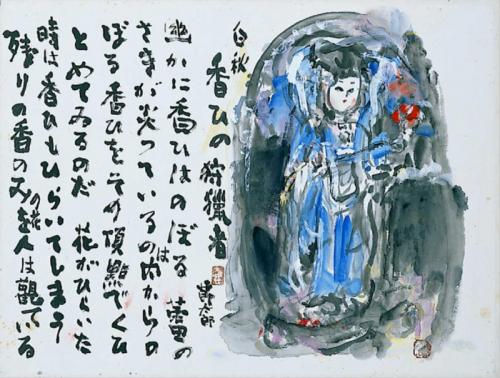 白秋
香ひの狩猟者
幽かに香ひはのぼる 蕾の
さきが尖つているのは内からの
ぼる香ひをその頂點でくひ
とめてゐるのだ 花がひらいた
時は香ひもひらいてしまう
残りの香のみの花を人は觀ている